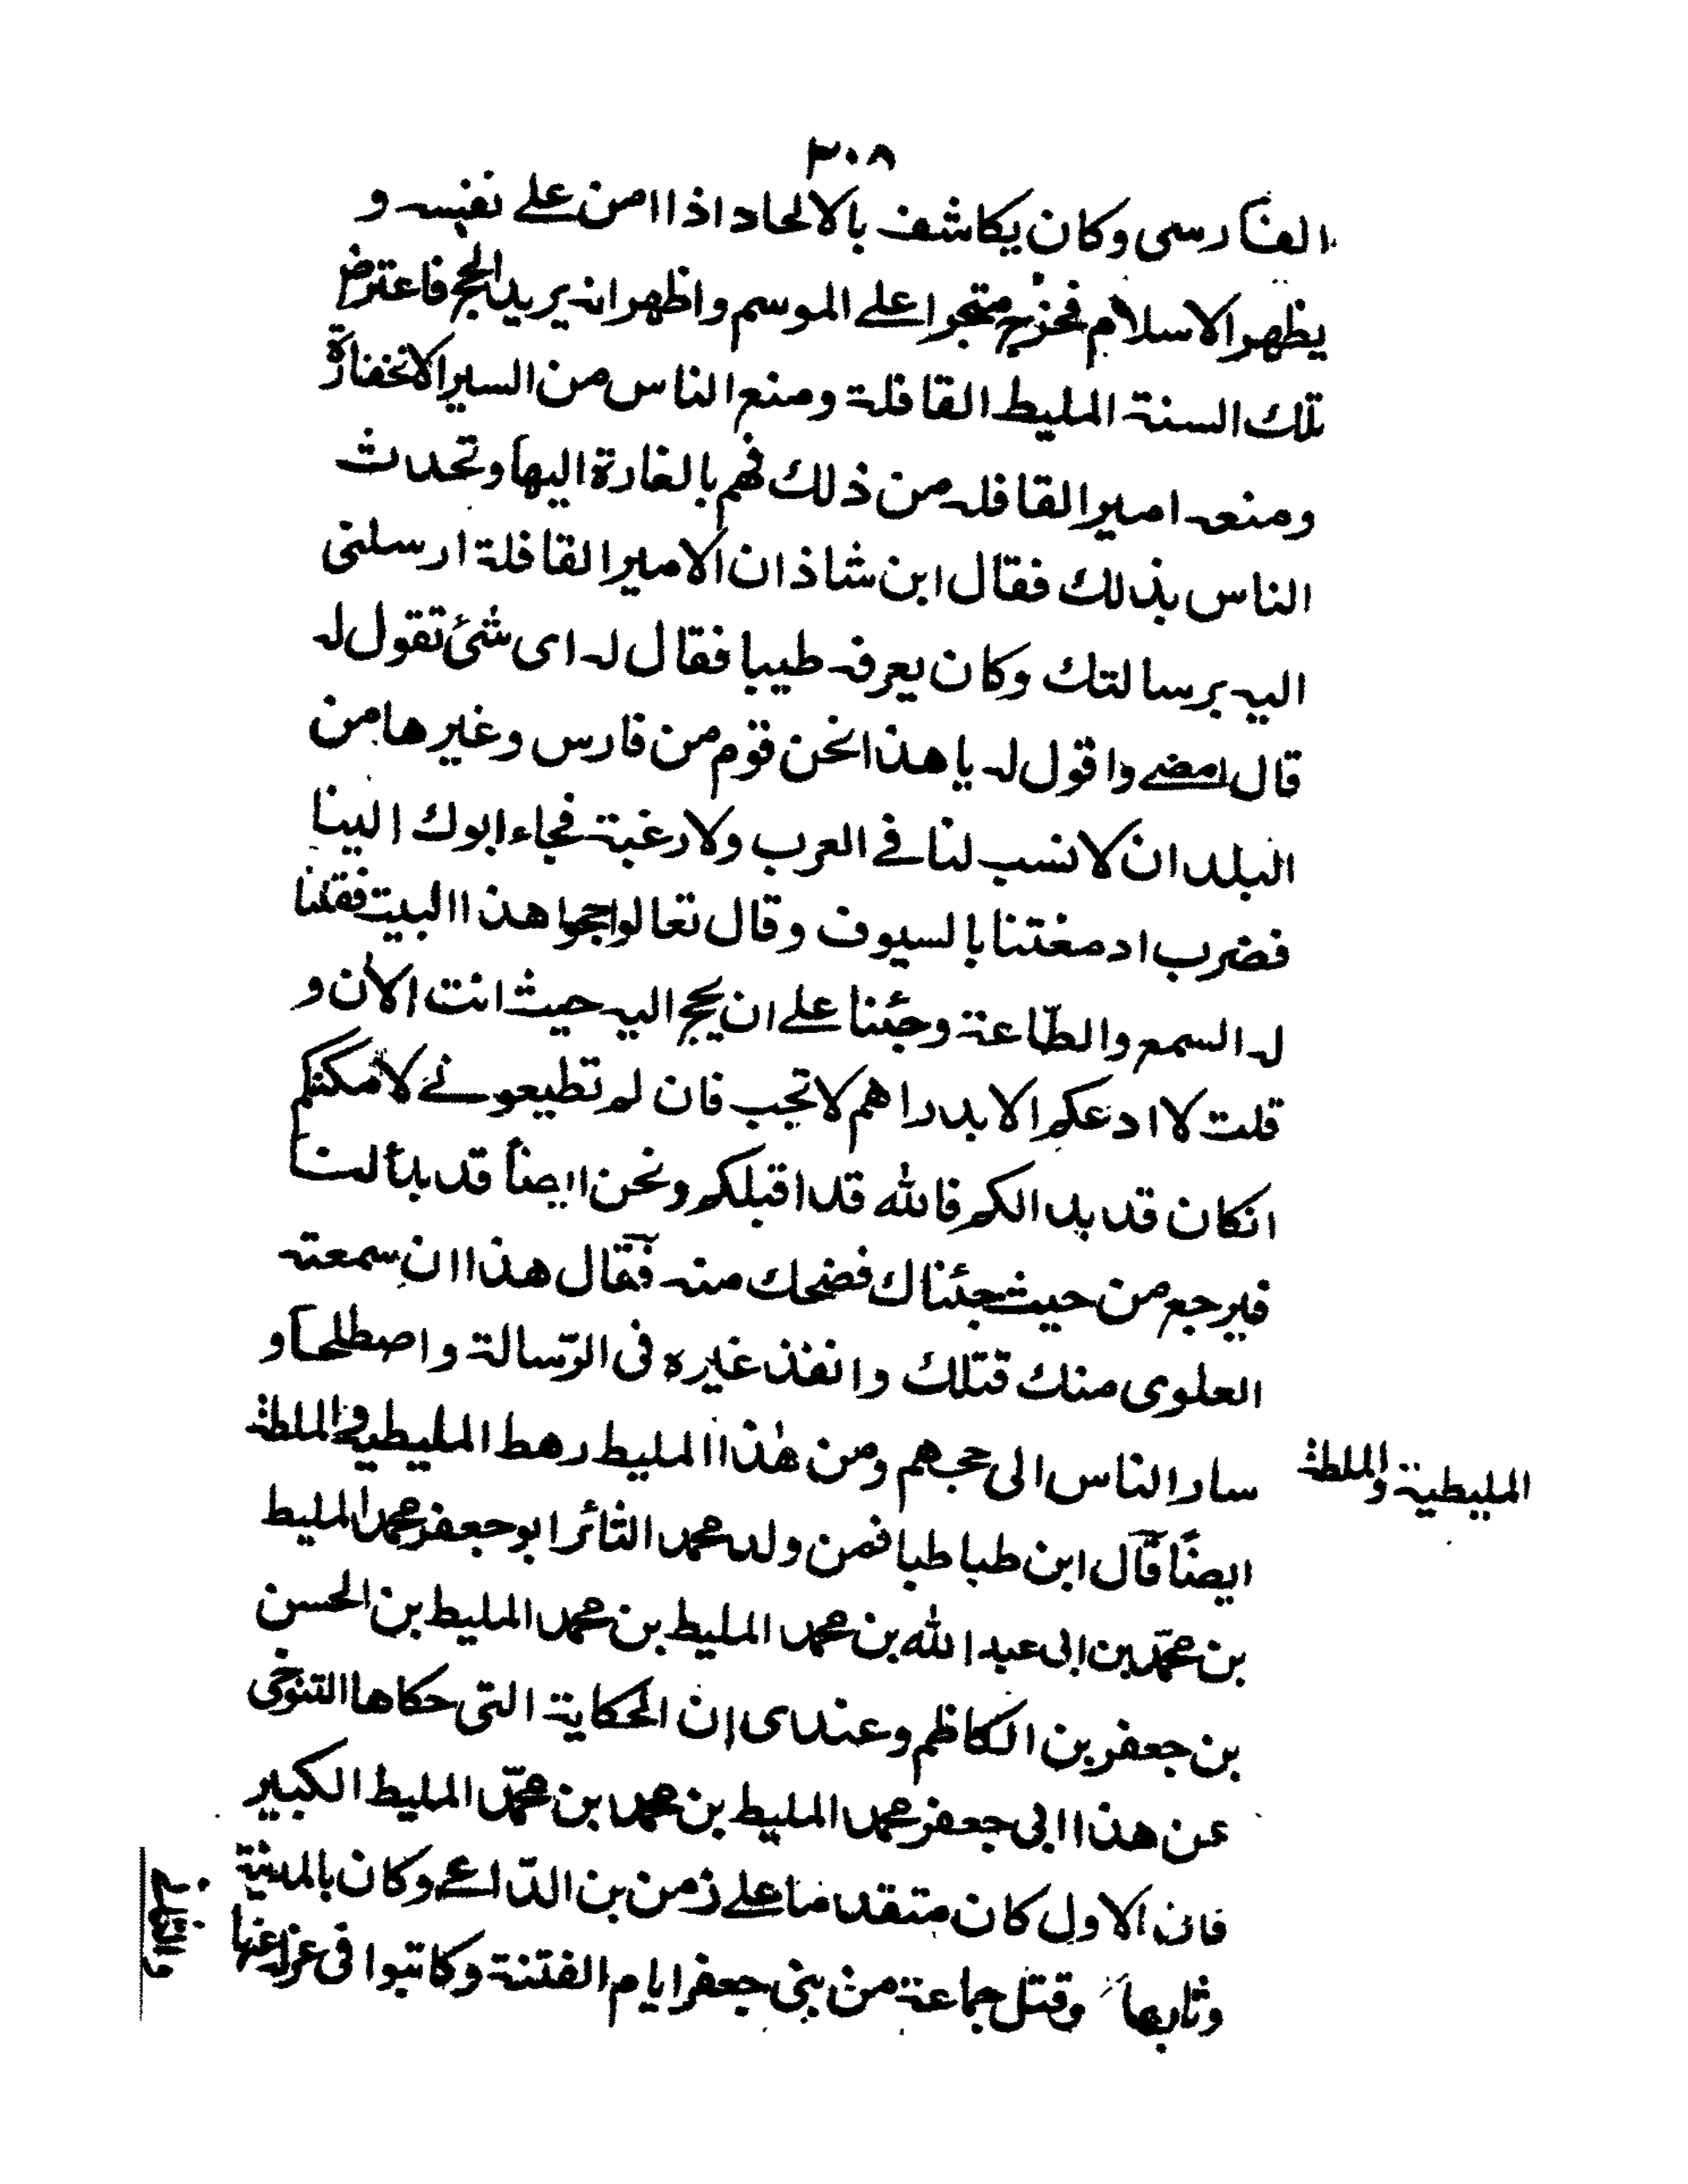 ٣٠٨
الفارسی وکان یکاشف بالالحاد اذا امن علے نفسہ و
یظهر الاسلام فخرج متجوا علے الموسم واظهر انہ یرید الحج فاعترض
تلك السنة الملیط القافلة ومنع الناس من السیر الا بخفارة
ومنعہ امیر القافلہ من ذلك فهم بالغارة الیها وتحدث
الناس بذلك فقال ابن شاذان الامیر القافلة ارسلنی
الیہ برسالتك وکان یعرفہ طیبا فقال لہ ای شئ تقول لہ
قال امضے واقول لہ یا هذا نحن قوم من فارس وغیرها من
البلدان لا نسب لنا فے العرب ولا رغبة فجاء ابوك الینا
فضرب ادمغتنا بالسیوف وقال تعالوا حجوا هذا البیت فقلنا
لہ السمع والطاعة وجئنا علے ان یحج الیہ حیث انت الان و
قلت لا ادعکم الا بدراهم لا تجب فان لم تطیعونے لا مکنکم
انکان قد بدا لکم فالله قد اقبلکم ونحن ایضاً قد بدأ لنا
فیرجع من حیث جئناك فضحك منہ فقال هذا ان سمعتہ
العلوی منك قتلك وانفذ غیره فی الرّسالة واصطلحا و
سار الناس الی حجهم ومن هذا الملیط رهط الملیطیة والملطة
الملیطیة والملطة
ایضًا قال ابن طباطبا فمن ولد محمد الثائر ابو جعفر محمد الملیط
بن محمّد بن ابی عبد الله بن محمد الملیط بن محمد الملیط بن الحسن
بن جعفر بن الکاظم وعندی إن الحکایة التی حکاها التنوخی
عن هذا ابی جعفر محمد الملیط بن محمد ابن محمّد الملیط الکبیر
فان الاول کان متقدما علے زمن بن الدّاعے وکان بالمدینة
وثار بها وقتل جماعة من بنی جعفر ایام الفتنة وکاتبوا فی عزله عنها